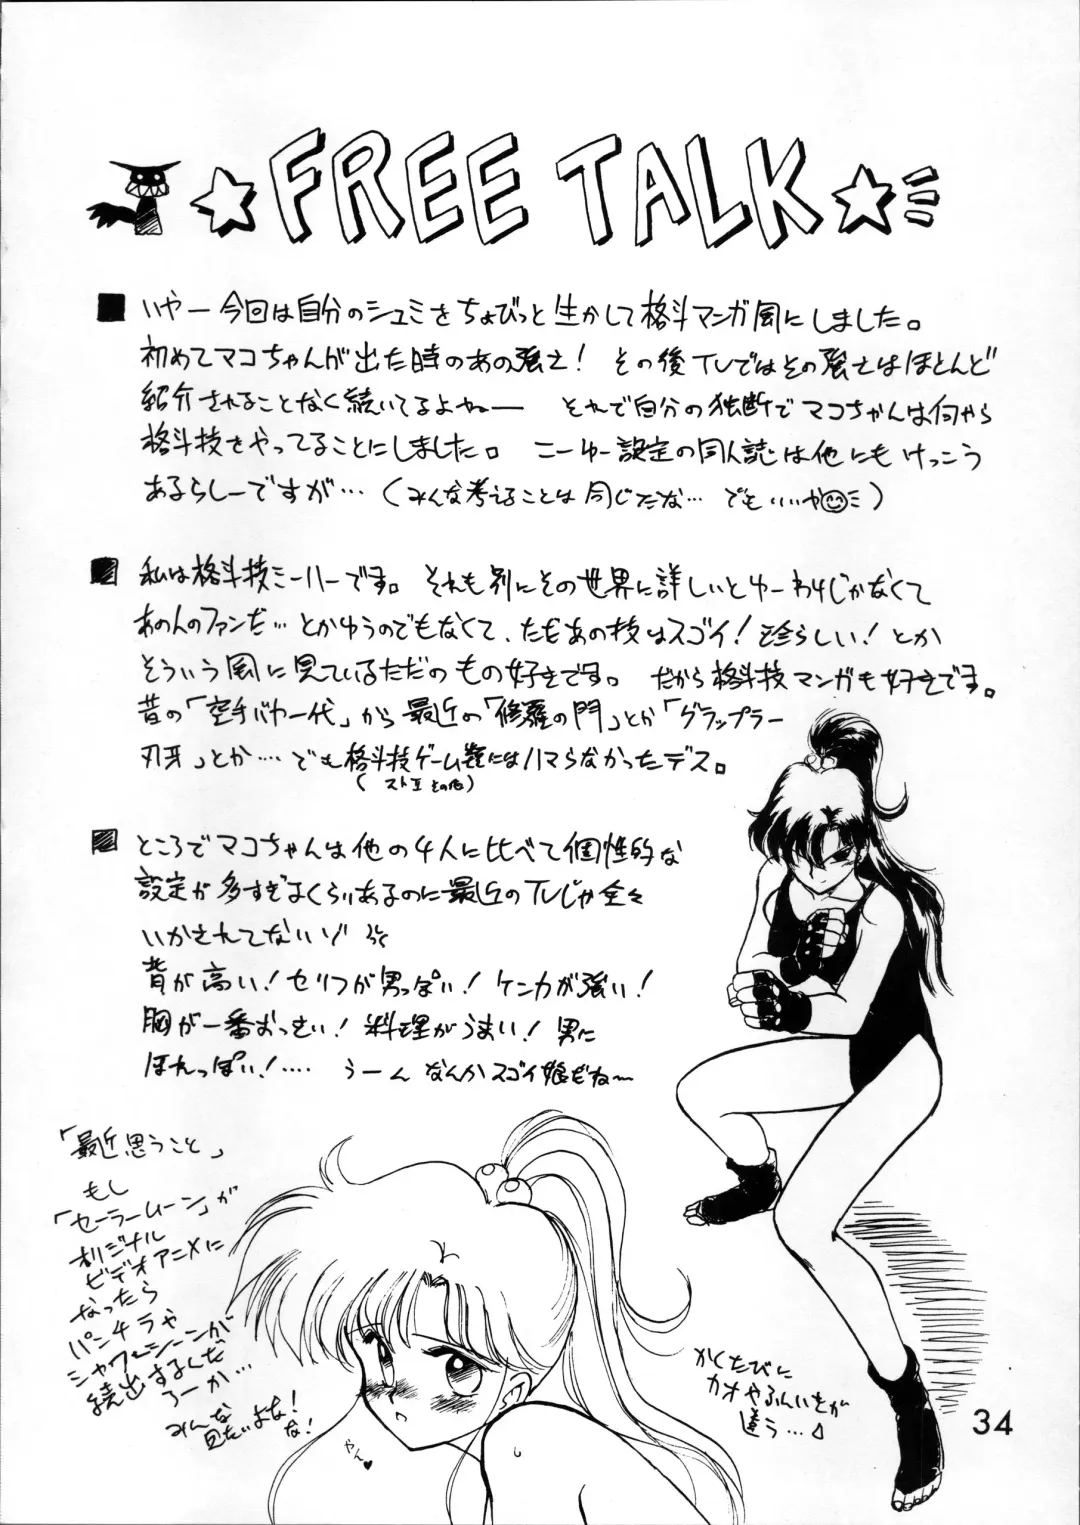 ☆FREE TALK☆
■ いやー今回は自分のシュミをちょびっと生かして格斗マンガ風にしました。
初めてマコちゃんが出た時のあの強さ! その後TVではその強さはほとんど
紹介されることなく続いてるよねー それで自分の独断でマコちゃんは何やら
格斗技をやってることにしました。 こーゆー設定の同人誌は他にもけっこう
あるらしーですが…(みんな考えることは同じだな… でもいいや)
■ 私は格斗技ミーハーです。 それも別にその世界に詳しいとゆーわけじゃなくて
あの人のファンだ…とかゆうのでもなくて、ただあの技はスゴイ!珍らしい!とか
そういう風に見ているただのもの好きです。 だから格斗技マンガも好きです。
昔の「空手バカ一代」から最近の「修羅の門」とか「グラップラー
刃牙」とか…。でも格斗技ゲーム類にはハマらなかったデス。
(ストⅡ その他)
■ ところでマコちゃんは他の4人に比べて個性的な
設定が多すぎまくりあるのに最近のTVじゃ全々
いかされてないゾ
背が高い!セリフが男っぽい!ケンカが強い!
胸が一番おっきい!料理がうまい!男に
ほれっぽい!…. うーんなんかスゴイ娘だね〜
「最近思うこと」
もし
「セーラームーン」が
オリジナル
ビデオアニメに
なったら
パンチラや
シャワーシーンが
続出するんだ
ろーか…
みんな
見たいよな!
な!
やん♥
かくたびに
カオやふんいきが
違う…
34